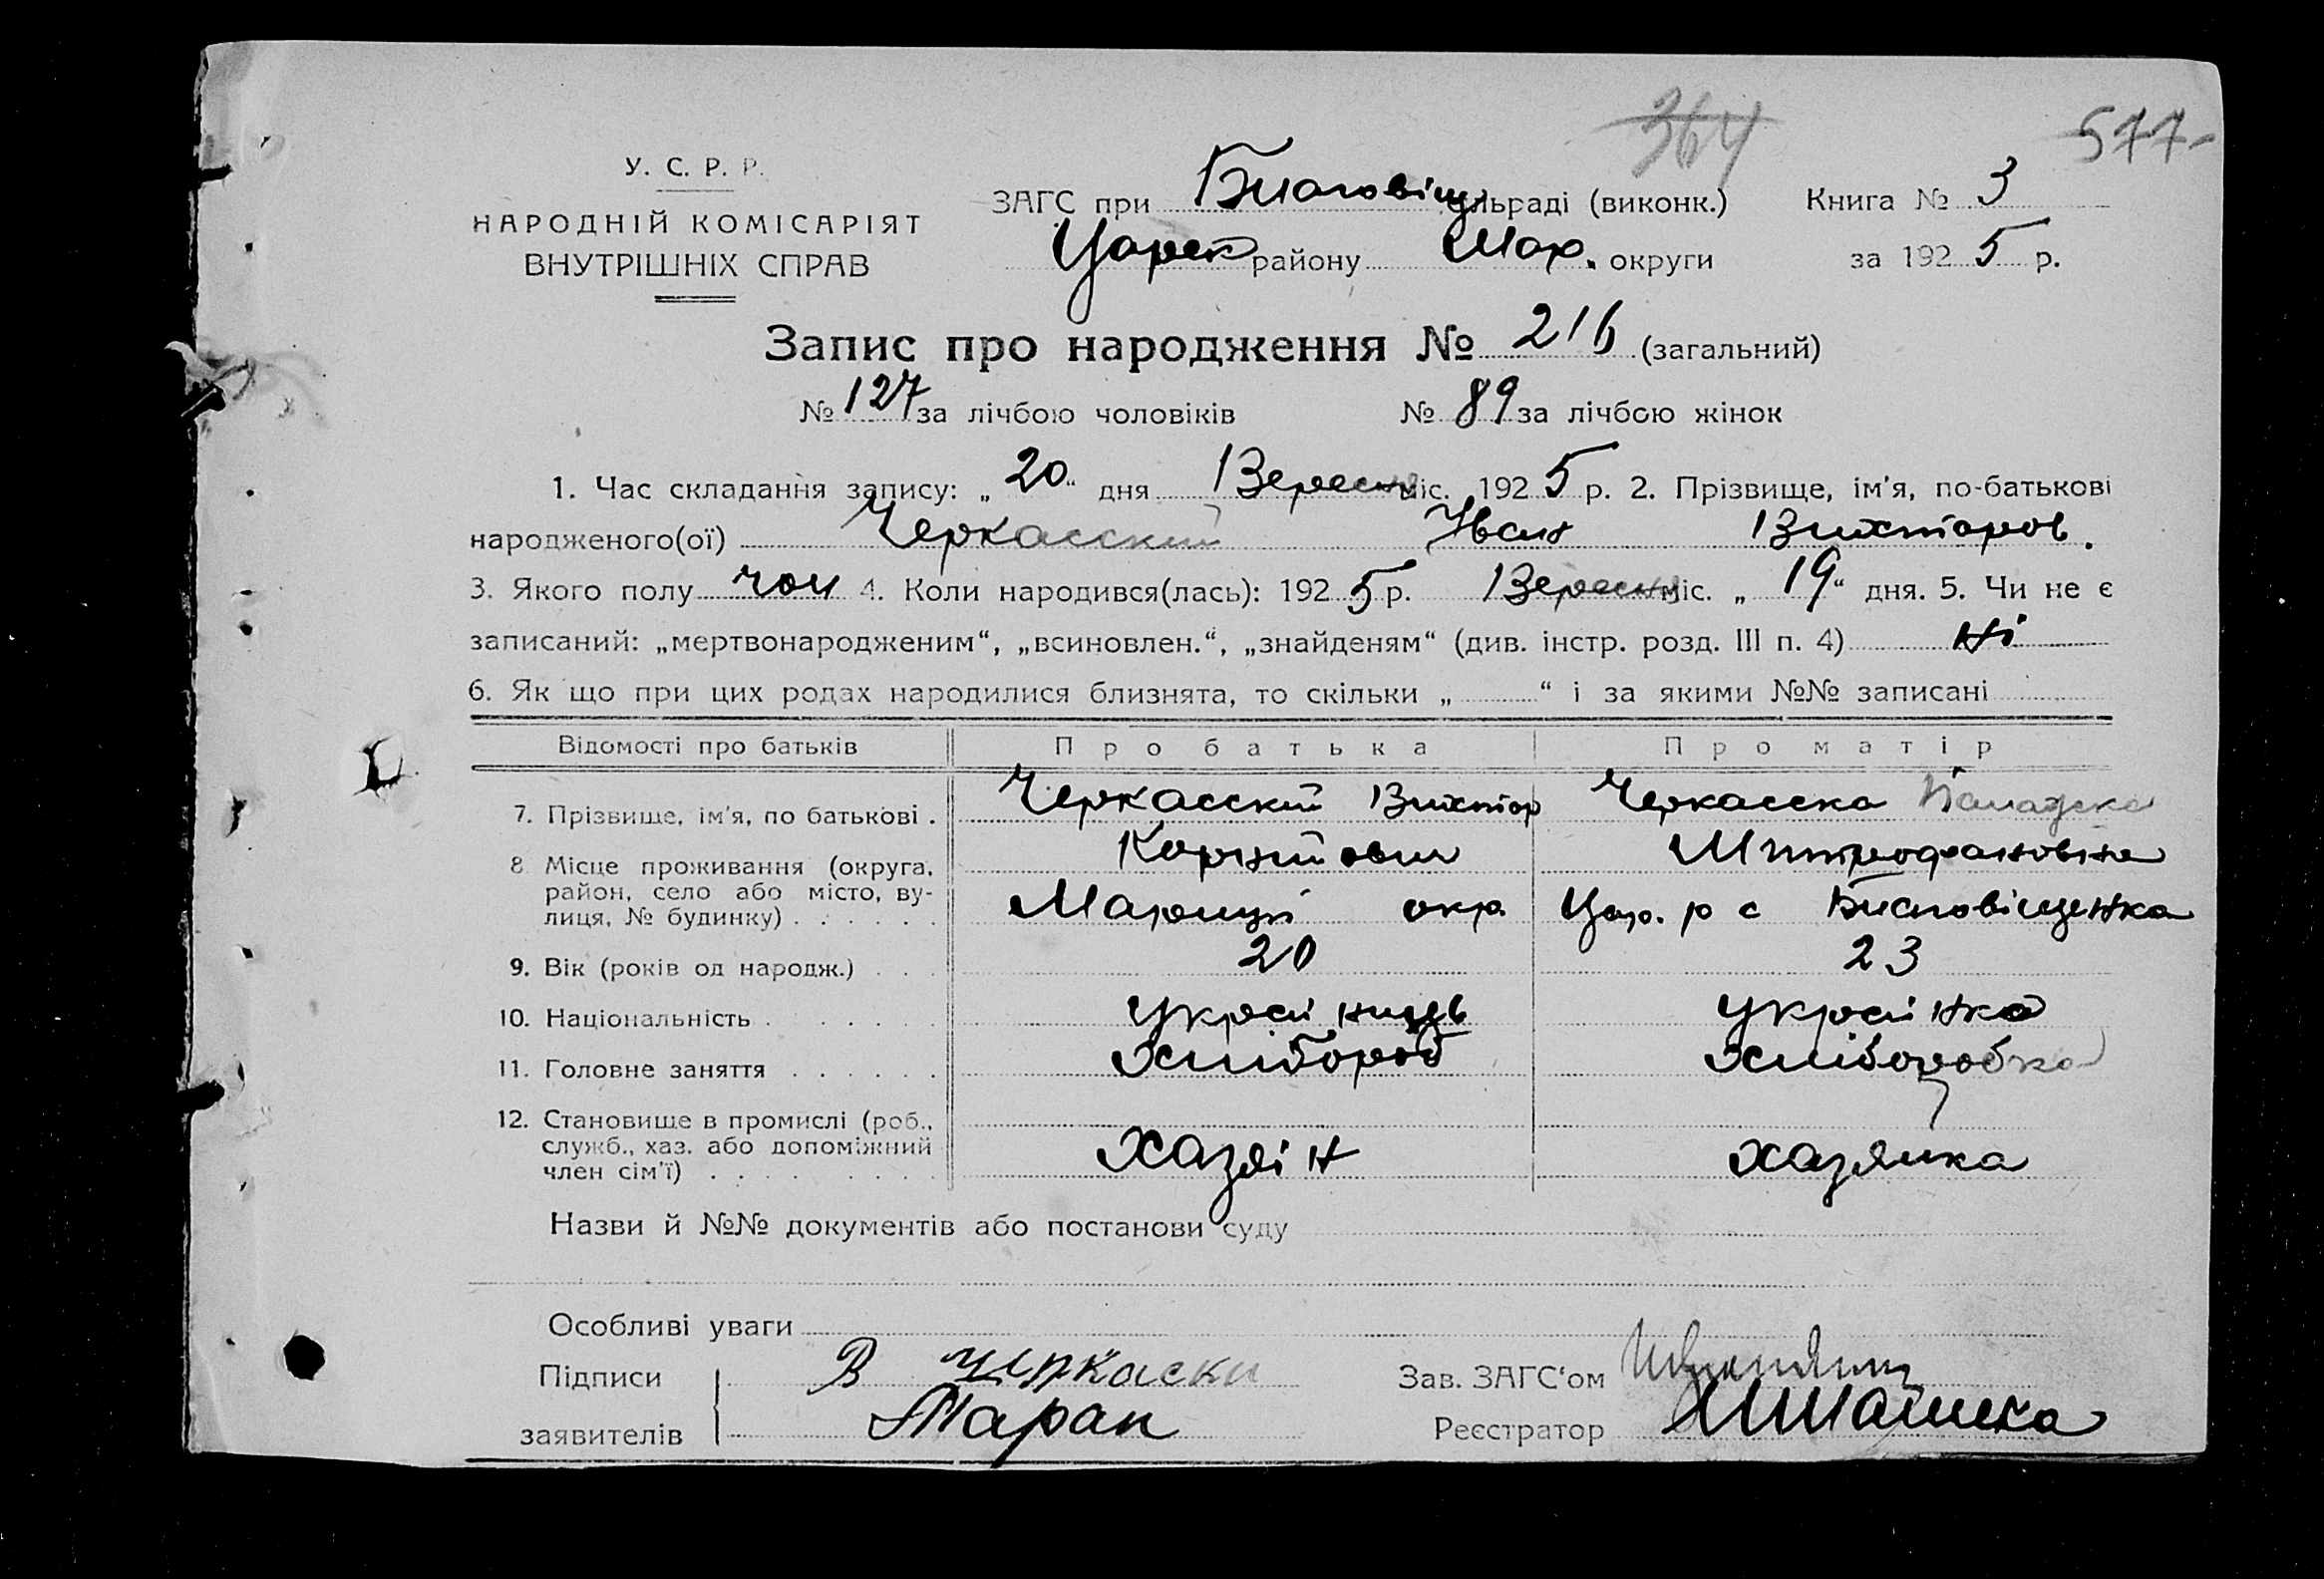 364 577-
У. С. Р. Р.
НАРОДНІЙ КОМІСАРІЯТ
ВНУТРІШНІХ СПРАВ
ЗАГС при Благовіщ сільраді (виконк.) Книга № 3
Царек району Мар. округи за 1925 р.
Запис про народження № 216 (загальний)
№ 127 за лічбою чоловіків № 89 за лічбою жінок
1. Час складання запису: „20“ дня Вересня міс. 1925 р. 2. Прізвище, ім'я, по-батькові
народженого(ої) Черкасский Іван Вихторов.
3. Якого полу чол 4. Коли народився(лась): 1925 р. Вересня міс. „19“ дня. 5. Чи не є
записаний: „мертвонародженим“, „всиновлен.“, „знайденям“ (див. інстр. розд. III п. 4) Ні
6. Як що при цих родах народилися близнята, то скільки „ “ і за якими №№ записані
Відомості про батьків Про батька Про матір
7. Прізвище, ім'я, по батькові . Черкасский Вихтор Черкасска
Митрофановна
8 Місце проживання (округа, район, село або місто, вулиця, № будинку) . . . . . . Маріупі окр Цар. р с Благовіщенка
9. Вік (років од народж.) . . . 20 23
10. Національність . . . . . . Українець Українка
11. Головне заняття . . . . . . Хлібороб Хліборобка
12. Становище в промислі (роб., служб., хаз. або допоміжний член сім'ї) . . . . . . . . Хазяін Хазяйка
Назви й №№ документів або постанови суду
Особливі уваги
Підписи В Черкаски Зав. ЗАГС'ом
заявителів Таран Реєстратор